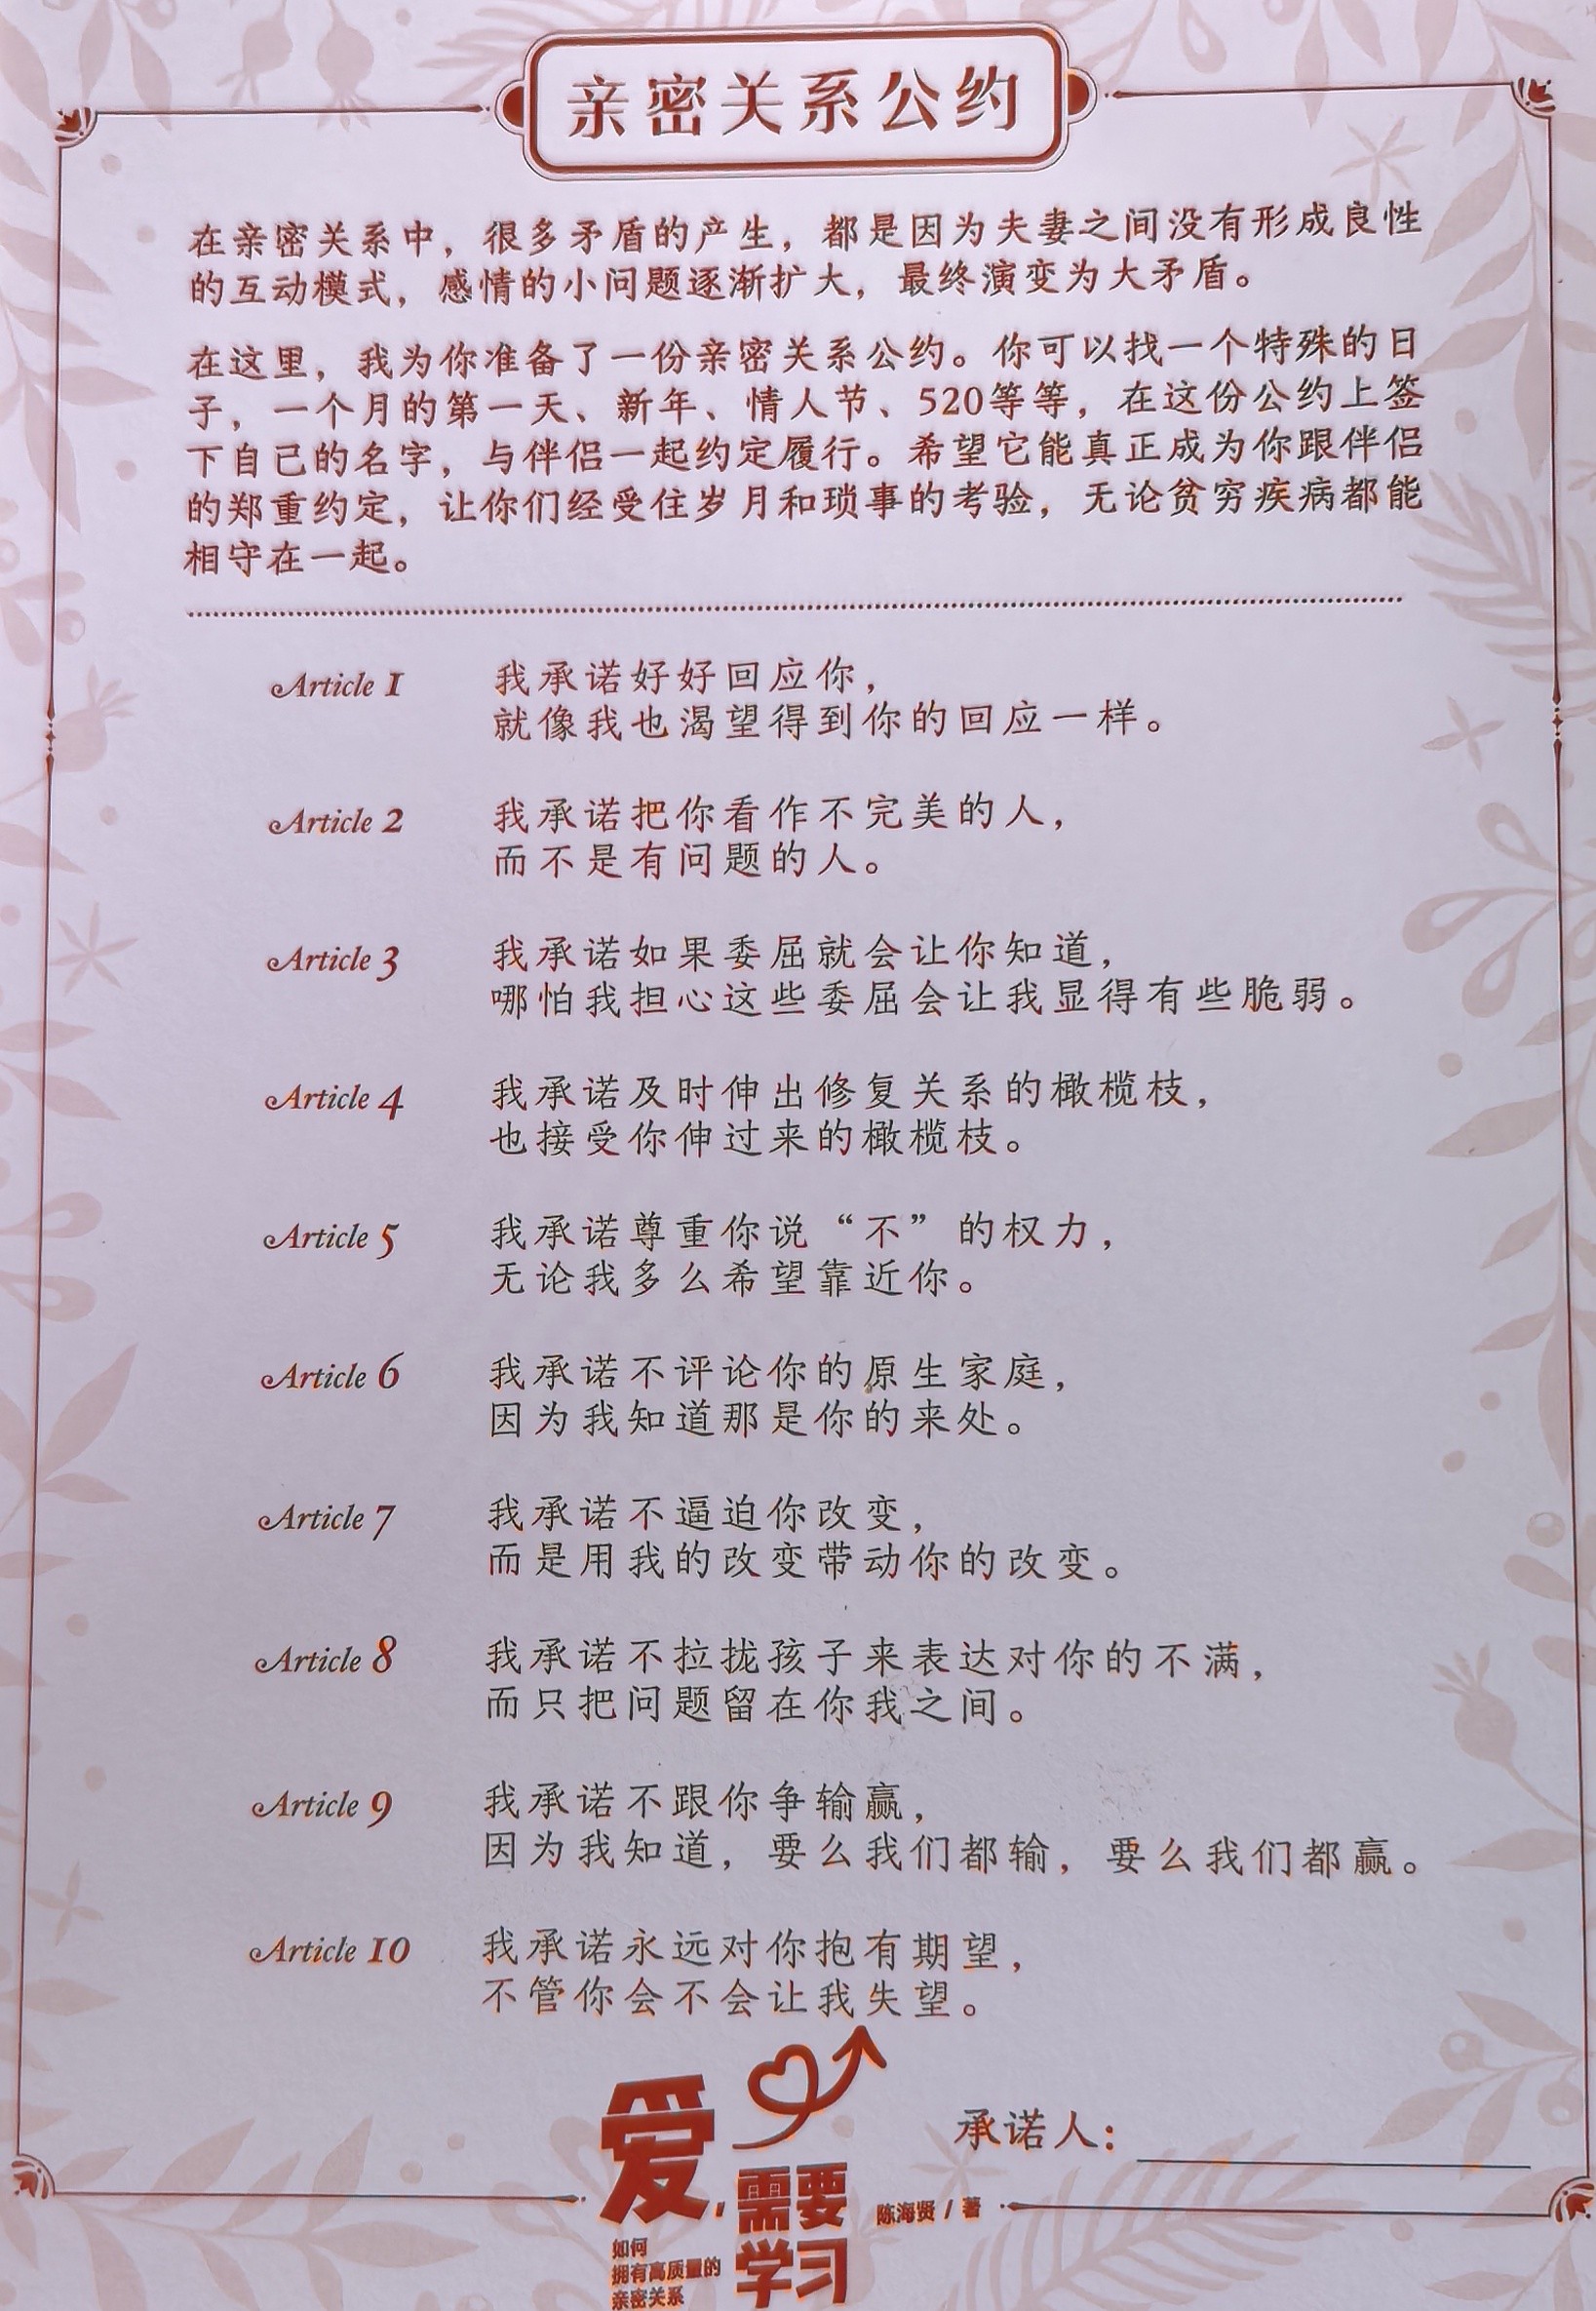 亲密关系公约
在亲密关系中，很多矛盾的产生，都是因为夫妻之间没有形成良性
的互动模式，感情的小问题逐渐扩大，最终演变为大矛盾。
在这里，我为你准备了一份亲密关系公约。你可以找一个特殊的日
子，一个月的第一天、新年、情人节、520等等，在这份公约上签
下自己的名字，与伴侣一起约定履行。希望它能真正成为你跟伴侣
的郑重约定，让你们经受住岁月和琐事的考验，无论贫穷疾病都能
相守在一起。
Article 1
我承诺好好回应你，
就像我也渴望得到你的回应一样。
Article 2
我承诺把你看作不完美的人，
而不是有问题的人。
Article 3
我承诺如果委屈就会让你知道，
哪怕我担心这些委屈会让我显得有些脆弱。
Article 4
我承诺及时伸出修复关系的橄榄枝，
也接受你伸过来的橄榄枝。
Article 5
我承诺尊重你说“不”的权力，
无论我多么希望靠近你。
Article 6
我承诺不评论你的原生家庭，
因为我知道那是你的来处。
Article 7
我承诺不逼迫你改变，
而是用我的改变带动你的改变。
Article 8
我承诺不拉拢孩子来表达对你的不满，
而只把问题留在你我之间。
Article 9
我承诺不跟你争输赢，
因为我知道，要么我们都输，要么我们都赢。
Article 10
我承诺永远对你抱有期望，
不管你会不会让我失望。
承诺人：
爱，
需要
学习
陈海贤 / 著
如何
拥有高质量的
亲密关系